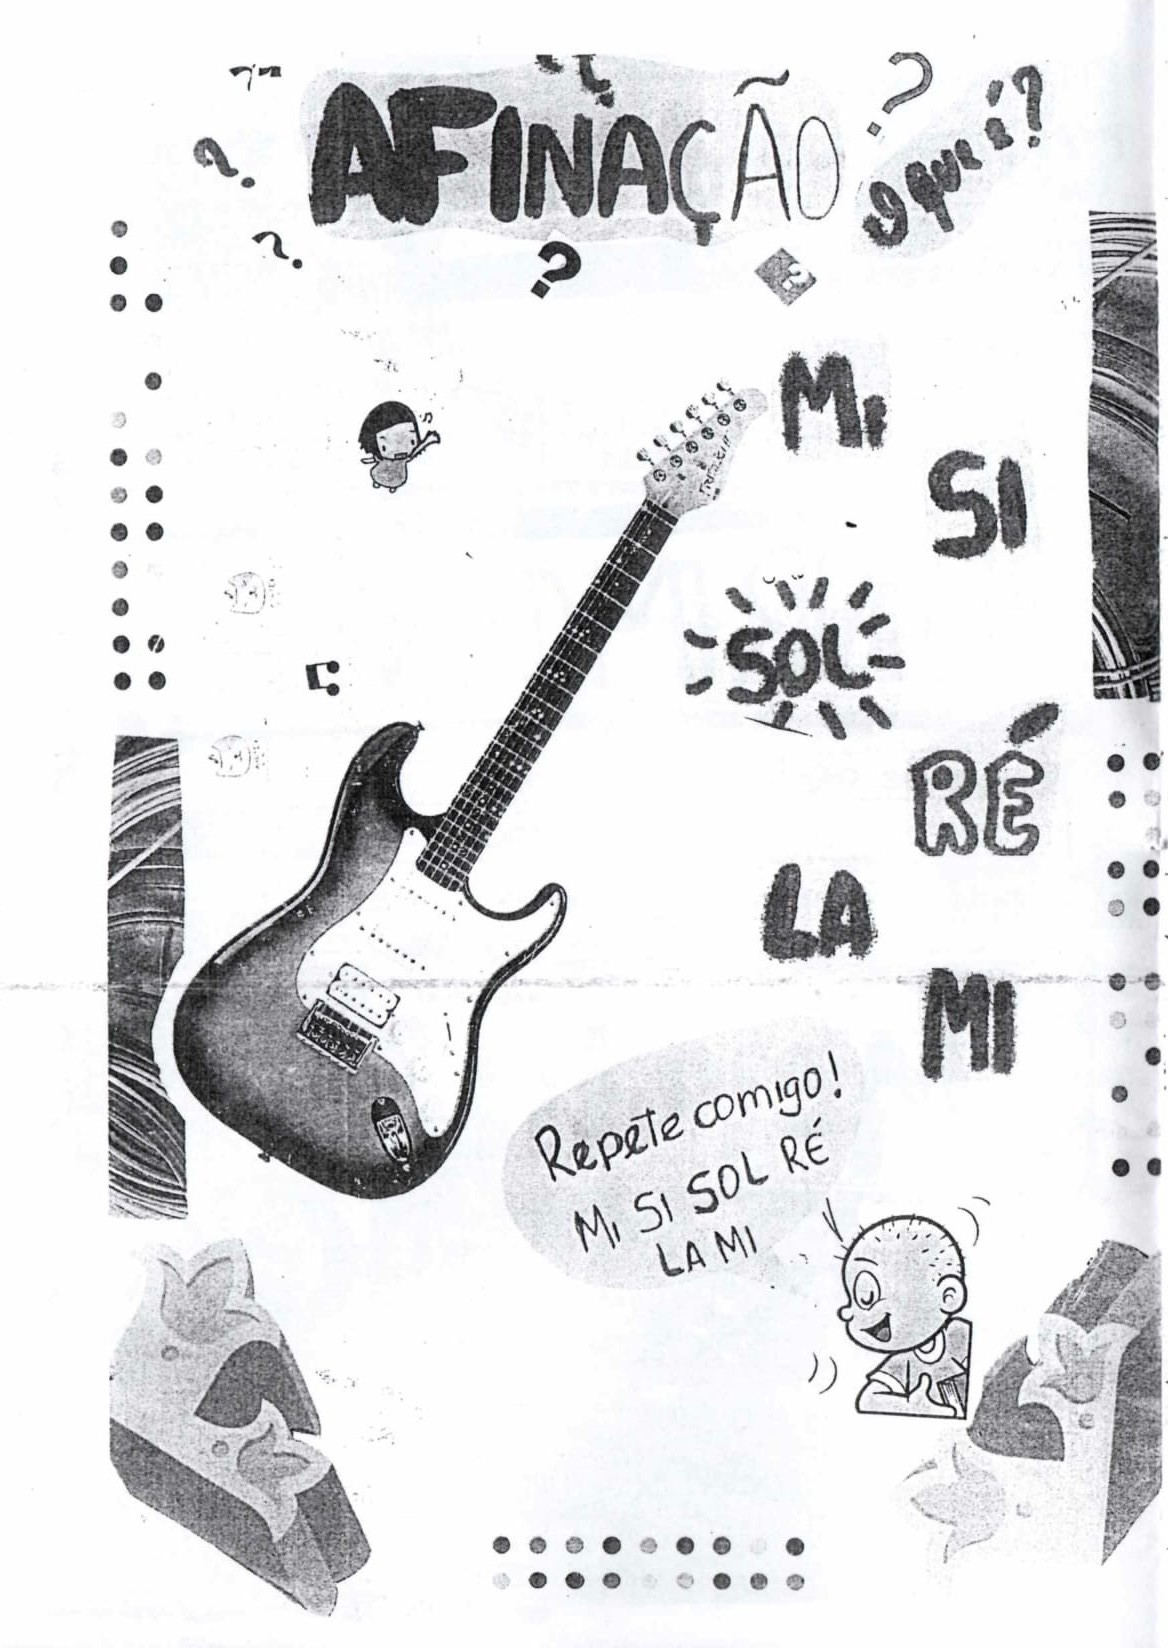 AFINAÇÃO
O que é?
MI
SI
SOL
RÉ
LA
MI
Repete comigo!
MI SI SOL RÉ
LA MI